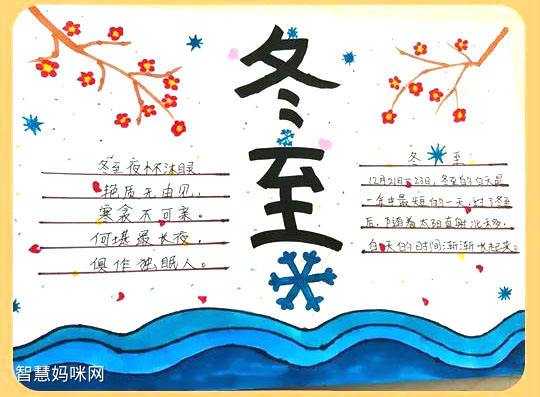 冬至
冬至夜怀
艳质无由见，
寒衾不可亲。
何堪最长夜，
俱作独眠人。
冬 至
12月21日-23日，冬至的白天是
一年 最短的一天，过了冬至
后，随着太阳直射北移，
白天的时间渐渐长起来。
智慧妈咪网